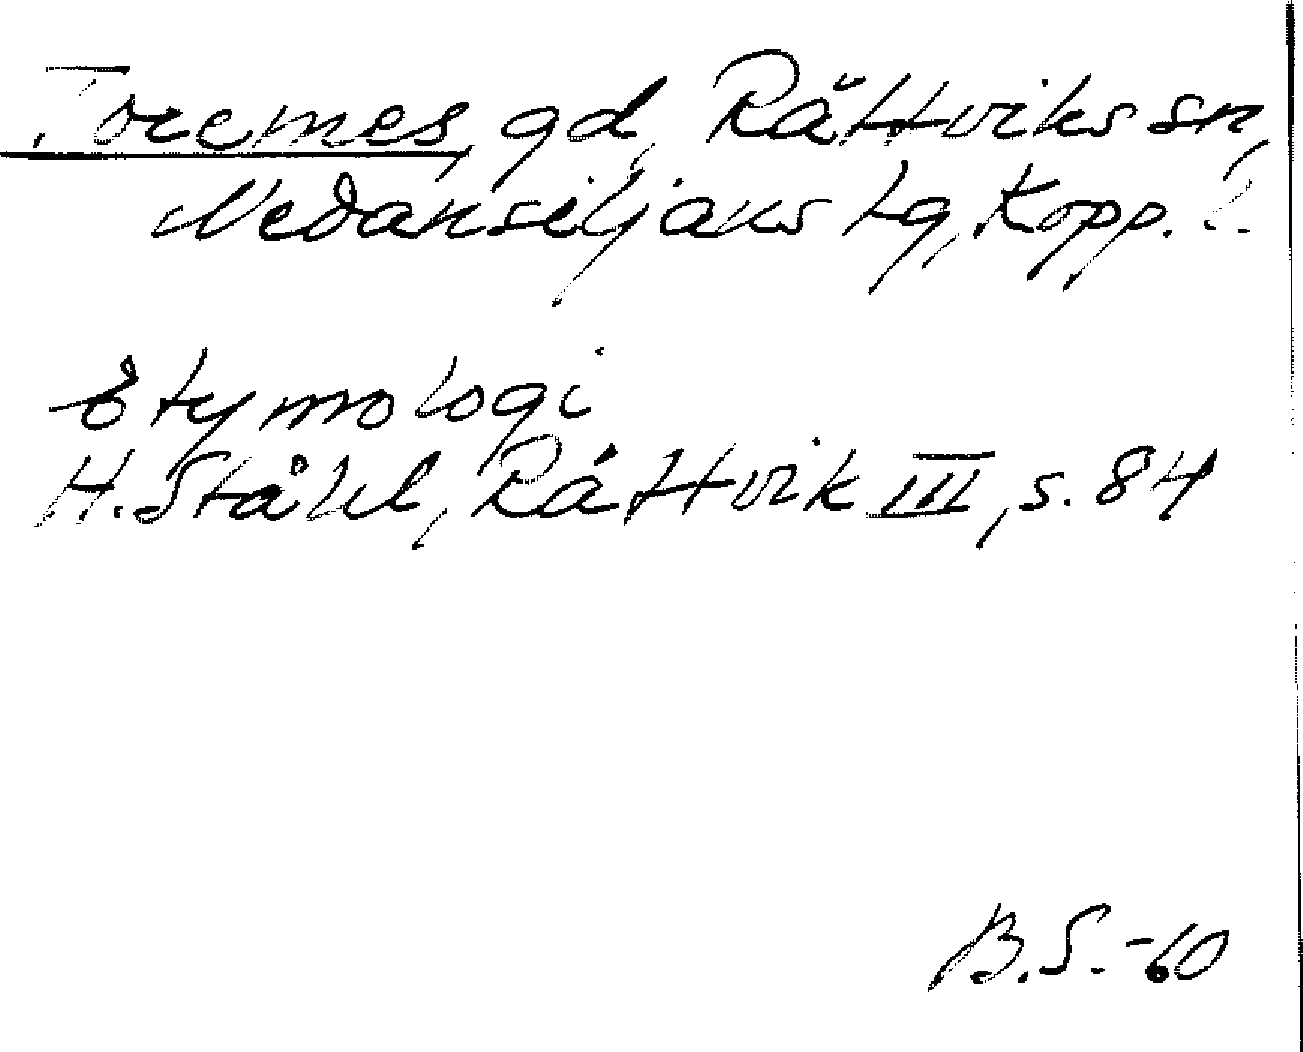 Toremes, gd, Rättviks sn,
Nedansiljans tg, Kopp. l.
Etymologi
H. Ståhl, Rättvik III, s. 84
B.S. -60